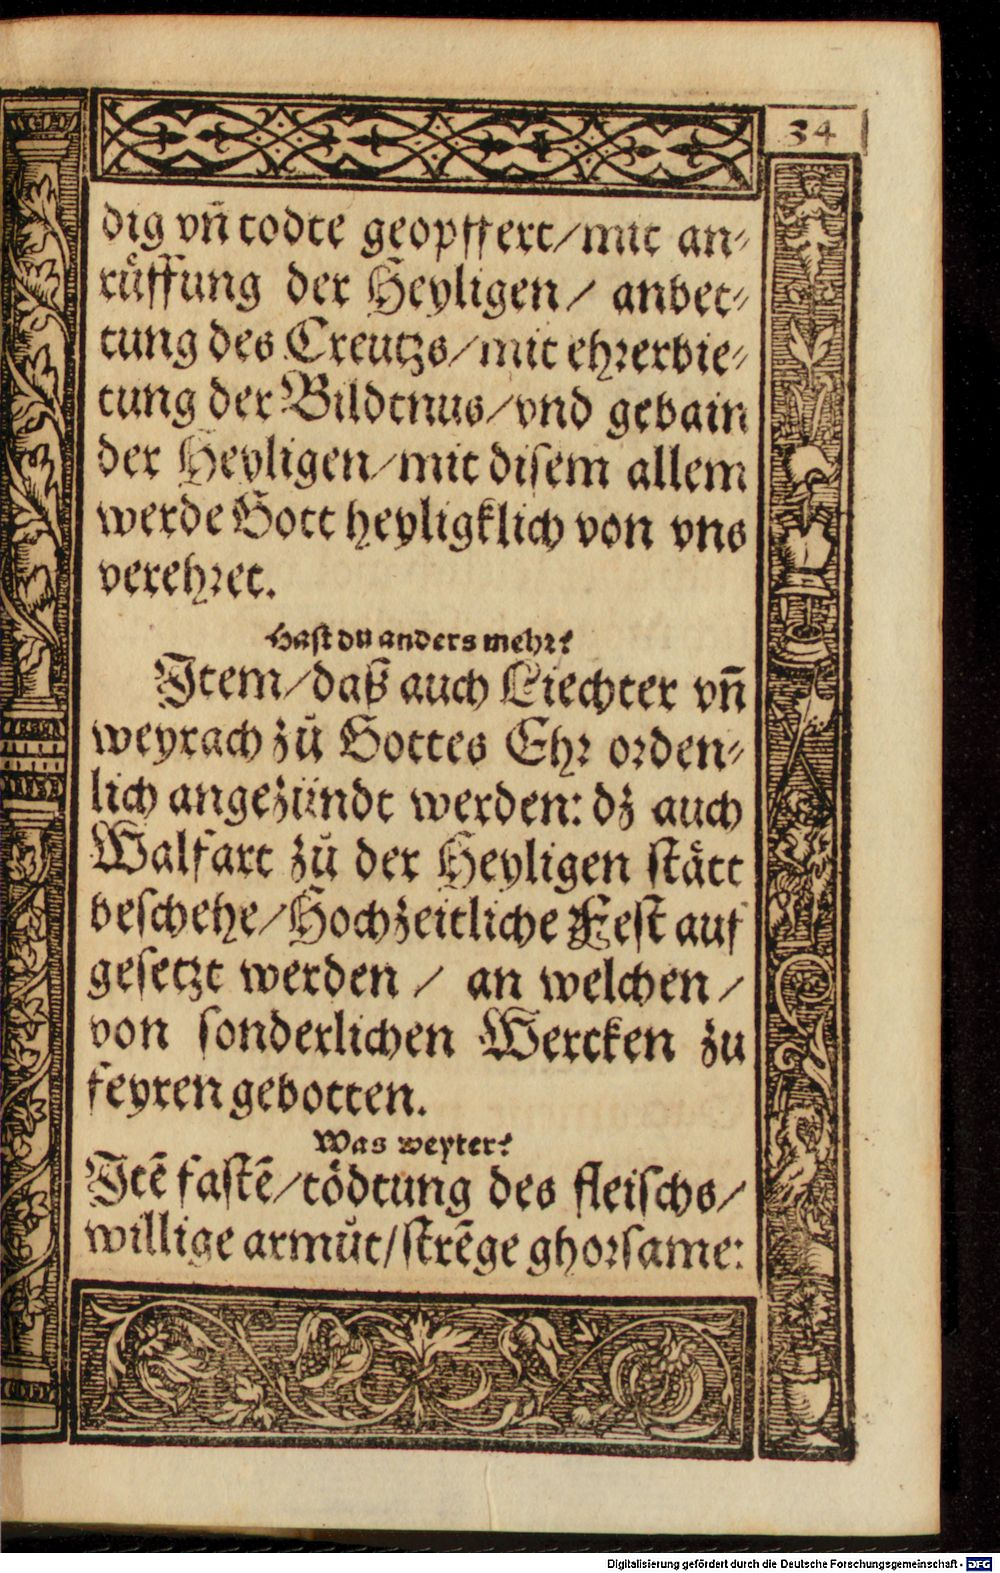 34
dig vñ todte geopffert/mit an⸗
rüffung der Heyligen/ anbet⸗
tung des Creutzs/mit ehrerbie⸗
tung der Bildtnus/vnd gebain
der Heyligen/mit disem allem
werde Gott heyligklich von vns
verehret.
Hast du anders mehr?
Item/daß auch Liechter vñ
weyrach zů Gottes Ehr orden⸗
lich angezündt werden: dz auch
Walfart zů der Heyligen stätt
beschehe/Hochzeitliche Fest auf
gesetzt werden/ an welchen/
von sonderlichen Wercken zu
feyren gebotten.
Was weyter?
Itē fastē/tödtung des fleischs/
willige armůt/strēge ghorsame:
Digitalisierung gefördert durch die Deutsche Forschungsgemeinschaft - DFG